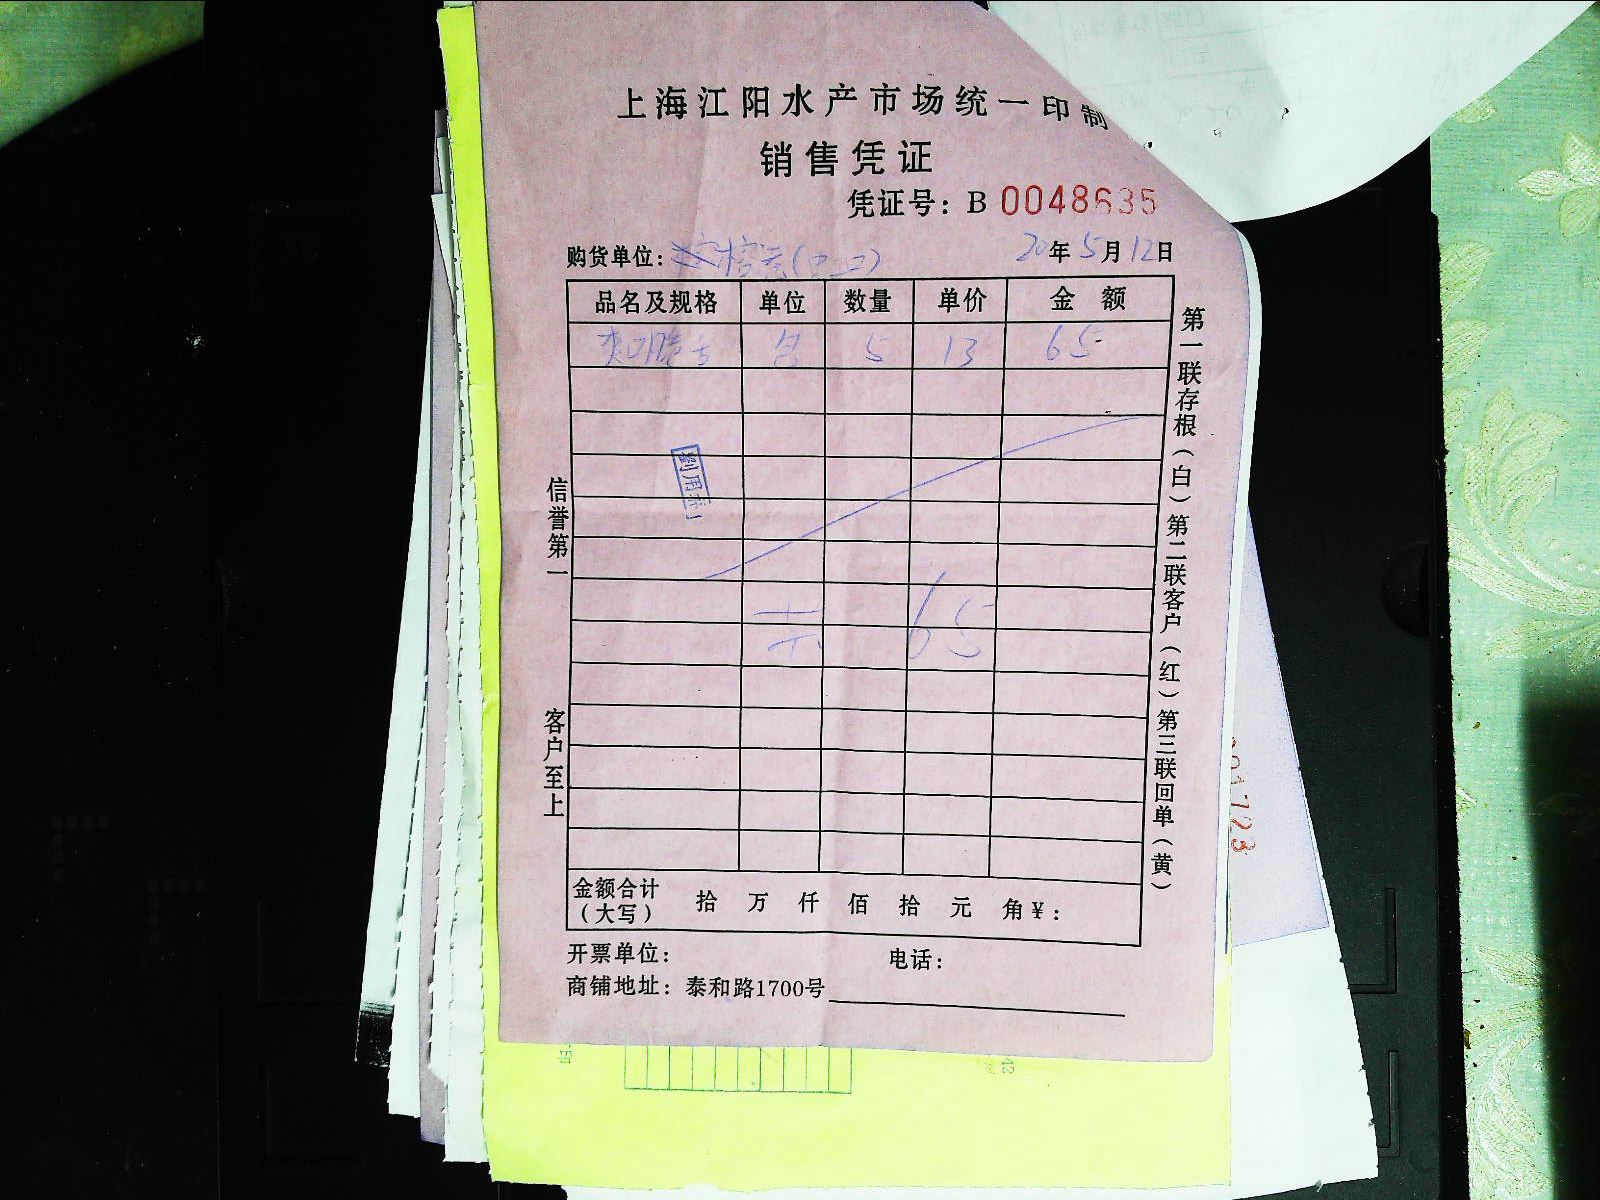 上海江阳水产市场统一印制
销售凭证
凭证号：B 0048635
购货单位：
20年5月12日
品名及规格 单位 数量 单价 金额
包 5 13 65
共 65
金额合计（大写） 拾 万 仟 佰 拾 元 角¥：
开票单位： 电话：
商铺地址：泰和路1700号
信誉第一 客户至上
第一联存根（白）第二联客户（红）第三联回单（黄）